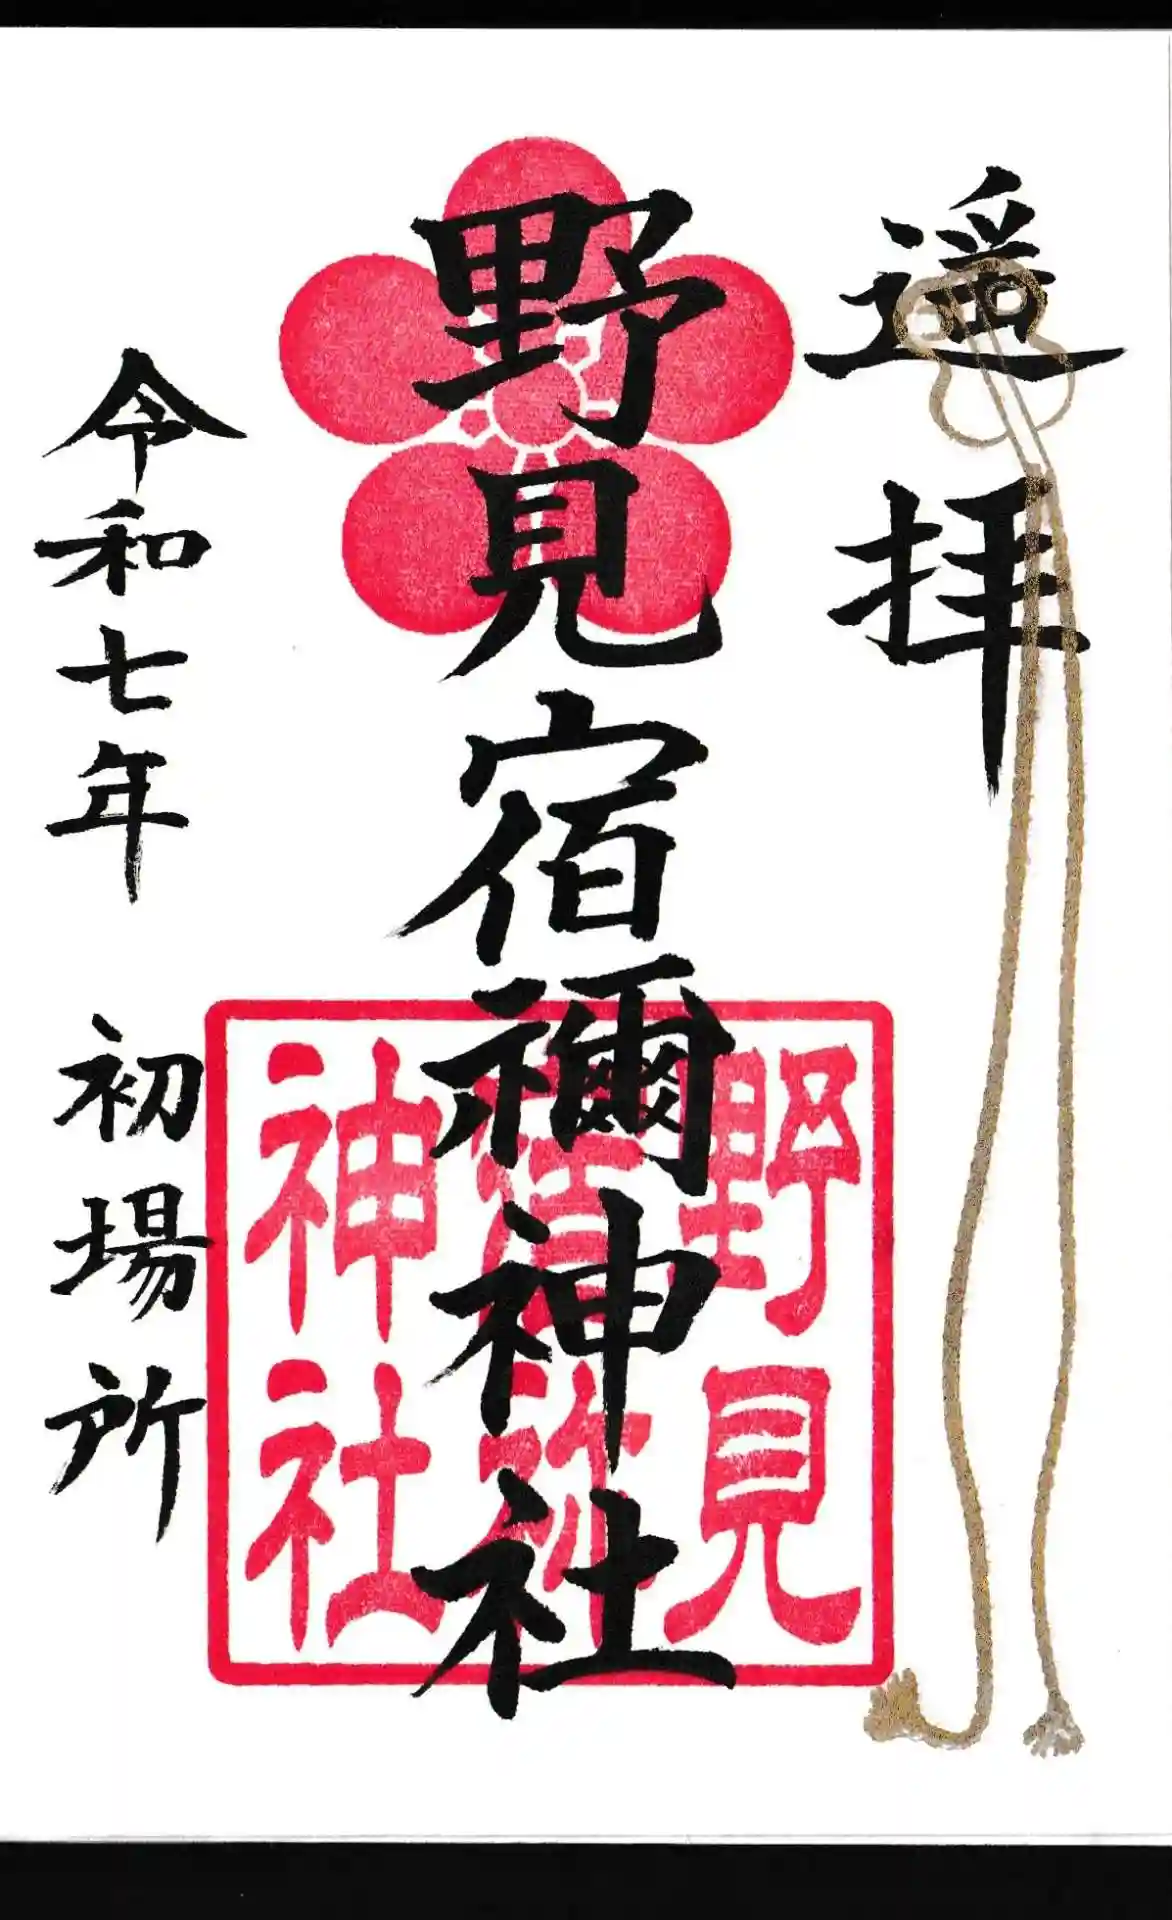 遥拝
野見宿禰神社
令和七年 初場所
野見
神社